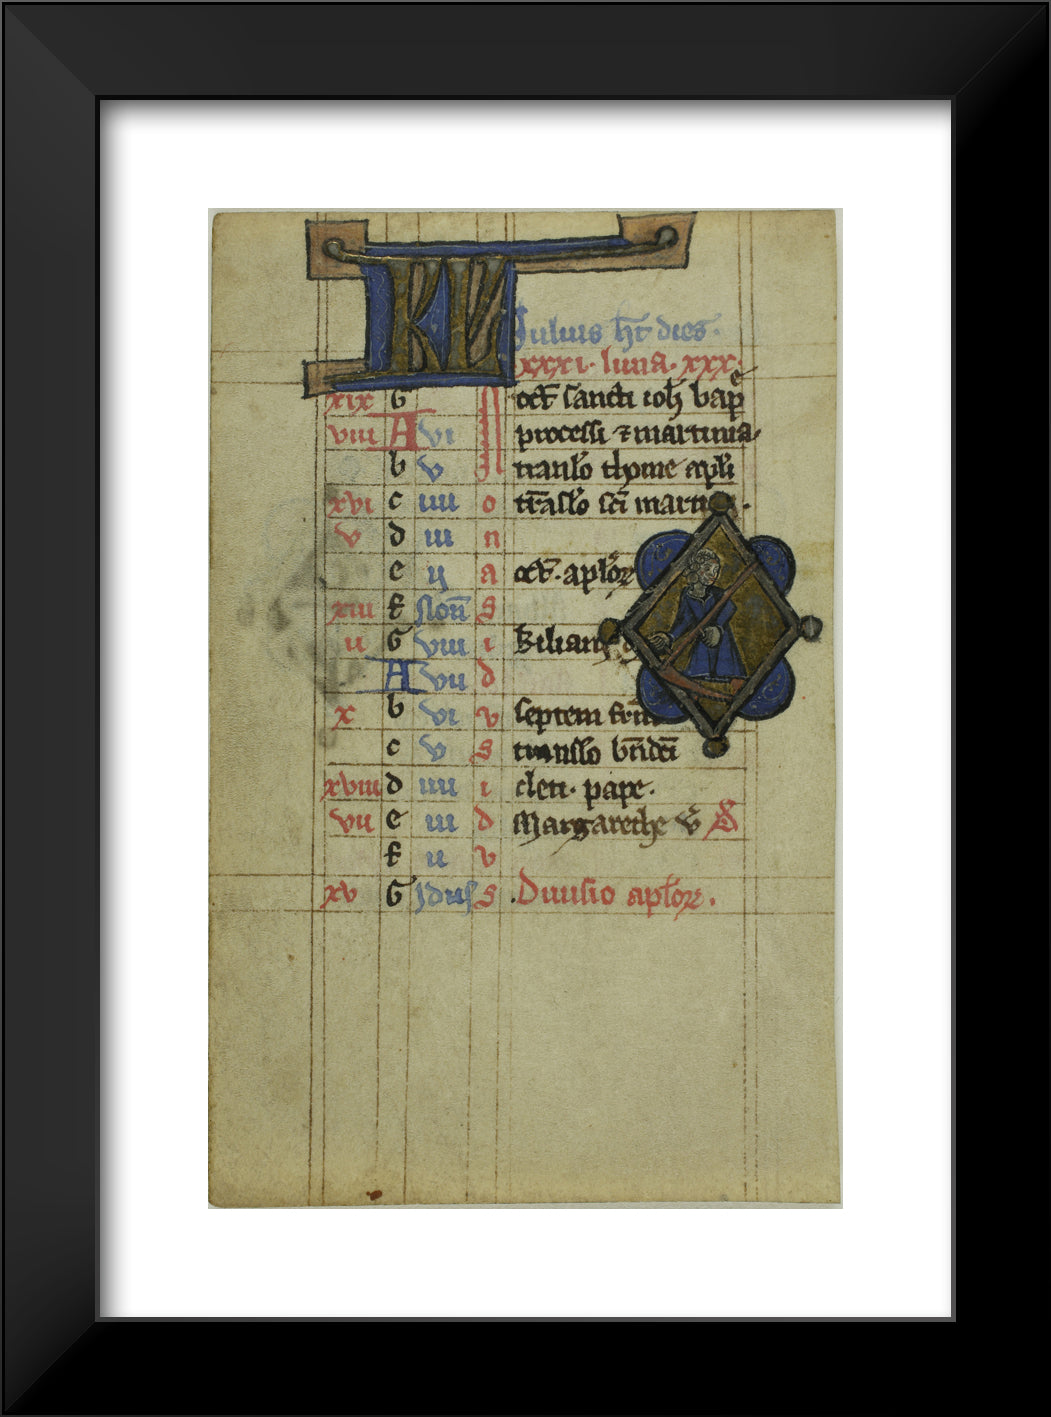 KL
Iulius ht dies.
xxxi. luna. xxx.
xix G oct sancti ioh bapẽ
viii A vi N processi ⁊ martinia.
b v translo thome apli
xvi c iiii o trãslo scī martini.
v d iii n
e ii a oct. aplor
xiii f Non s
ii G viii i kiliani
A vii d
x b vi v septem frm
c v s translo bñdcī
xviii d iiii i cleti. pape.
vii e iii d Margarethe v̄
f ii v
xv G Idus s .Diuisio aplor.